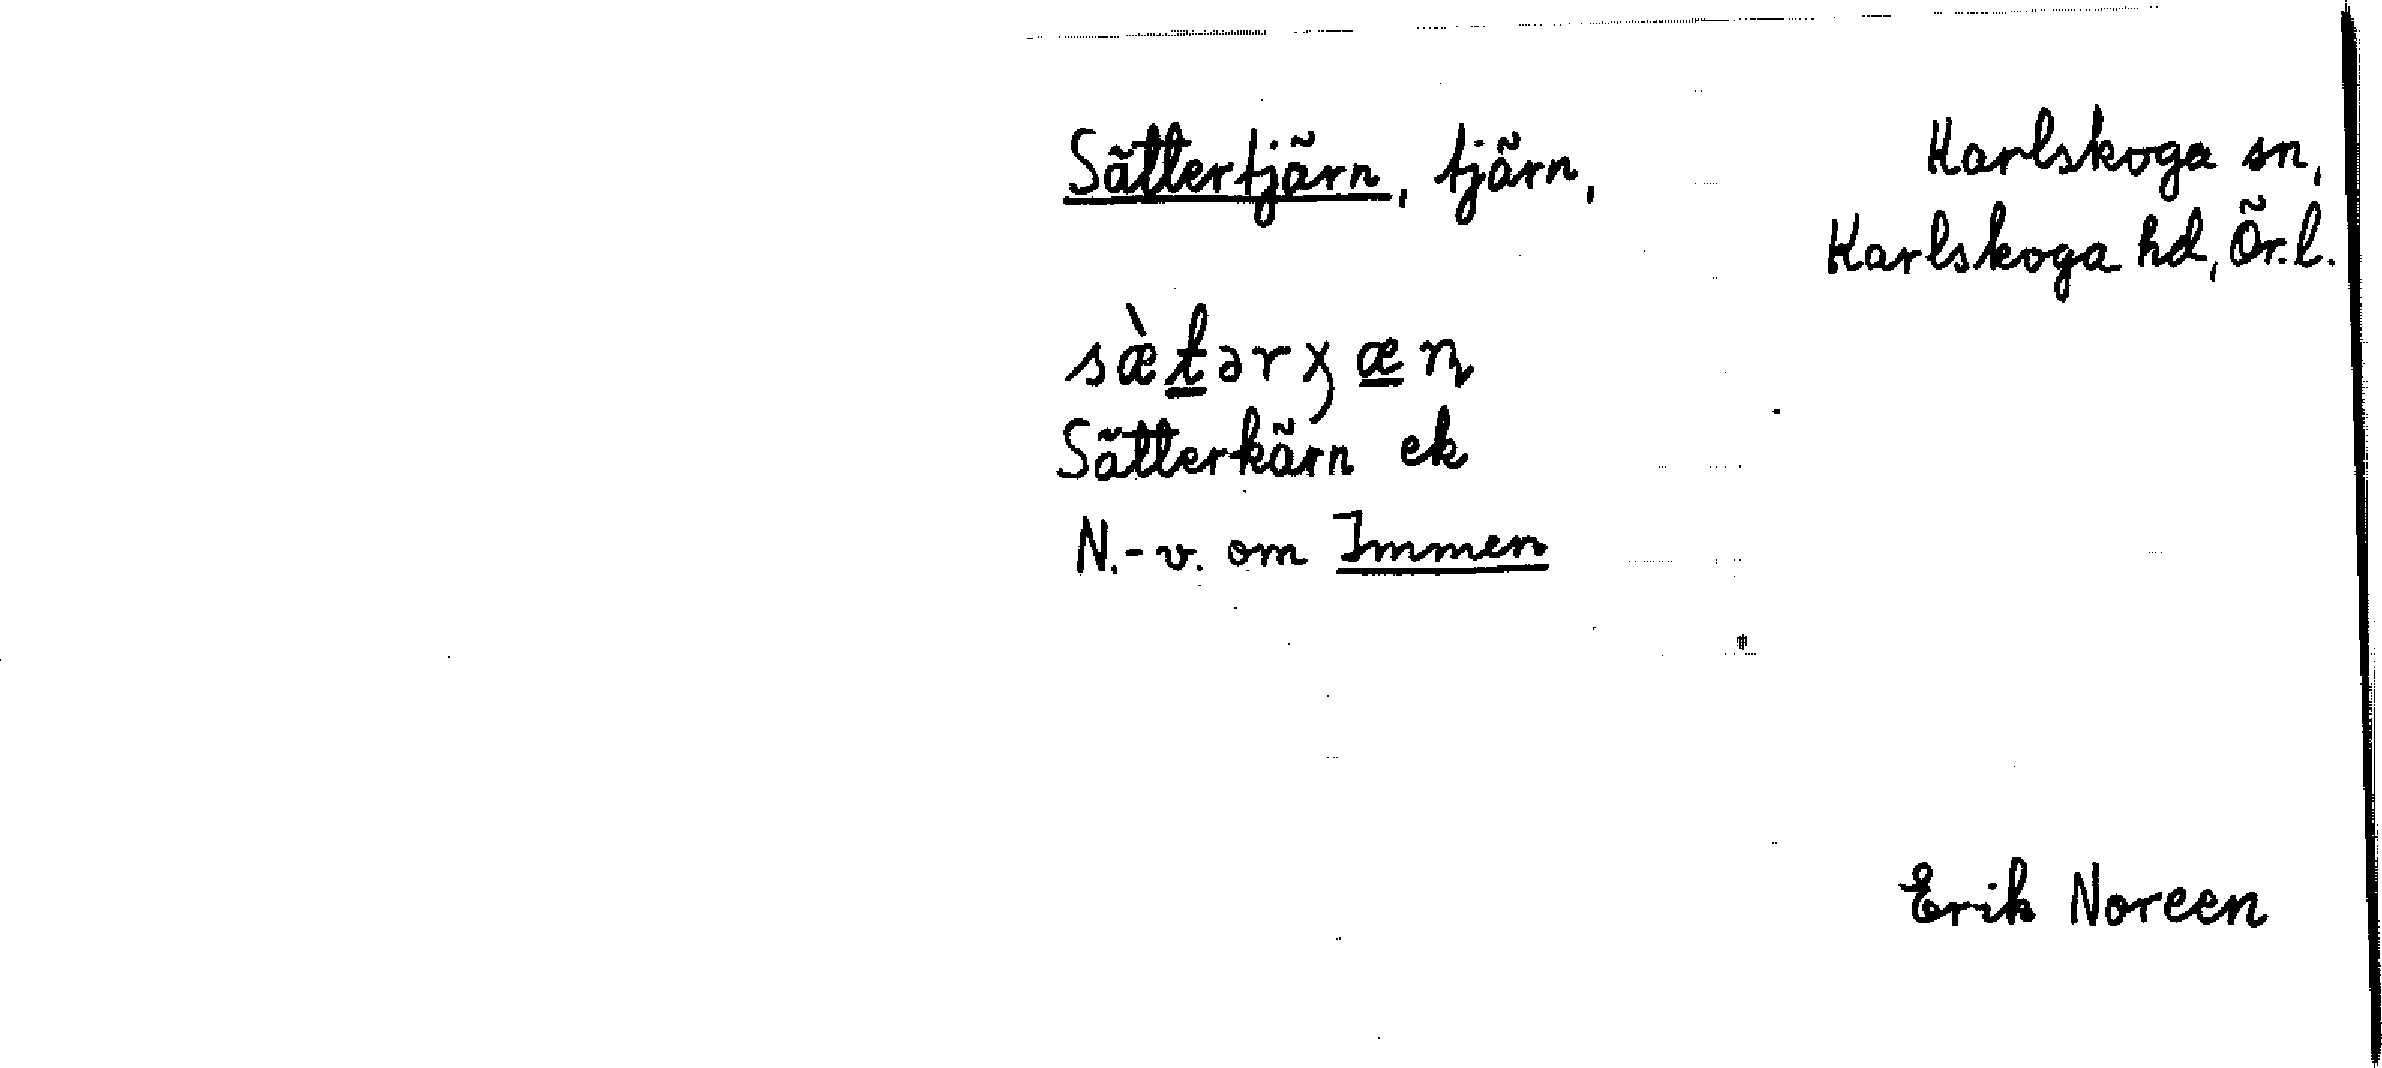 Sättertjärn, tjärn,
Karlskoga sn,
Karlskoga hd, Ör. l.
sæ̀t̲ərχæ̲ɳ
Sätterkärn ek
N.-v. om Immen
Erik Noreen